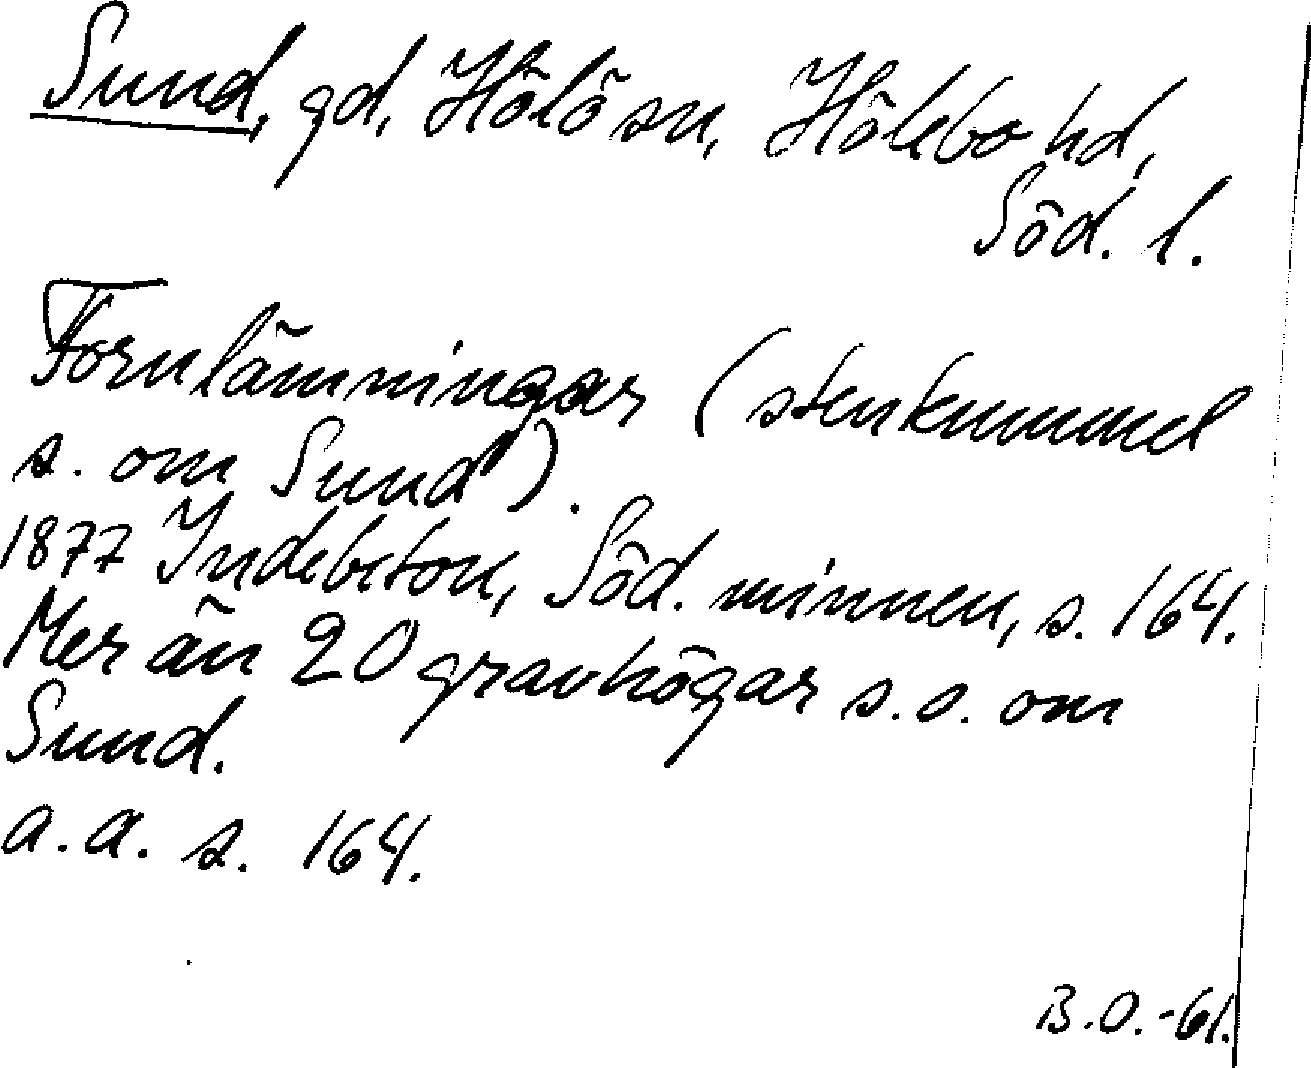 Sund, gd, Hölö sn, Hölebo hd,
Söd. l.
Fornlämningar (stenkummel
s. om Sund).
1877 Indebetou, Söd. minnen, s. 164.
Mer än 20 gravhögar s.o. om
Sund.
a.a. s. 164.
B.O.-61.